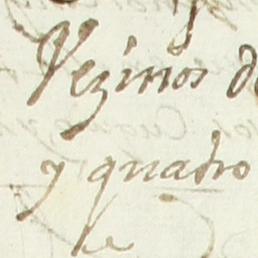 Vezinos de
y quatro